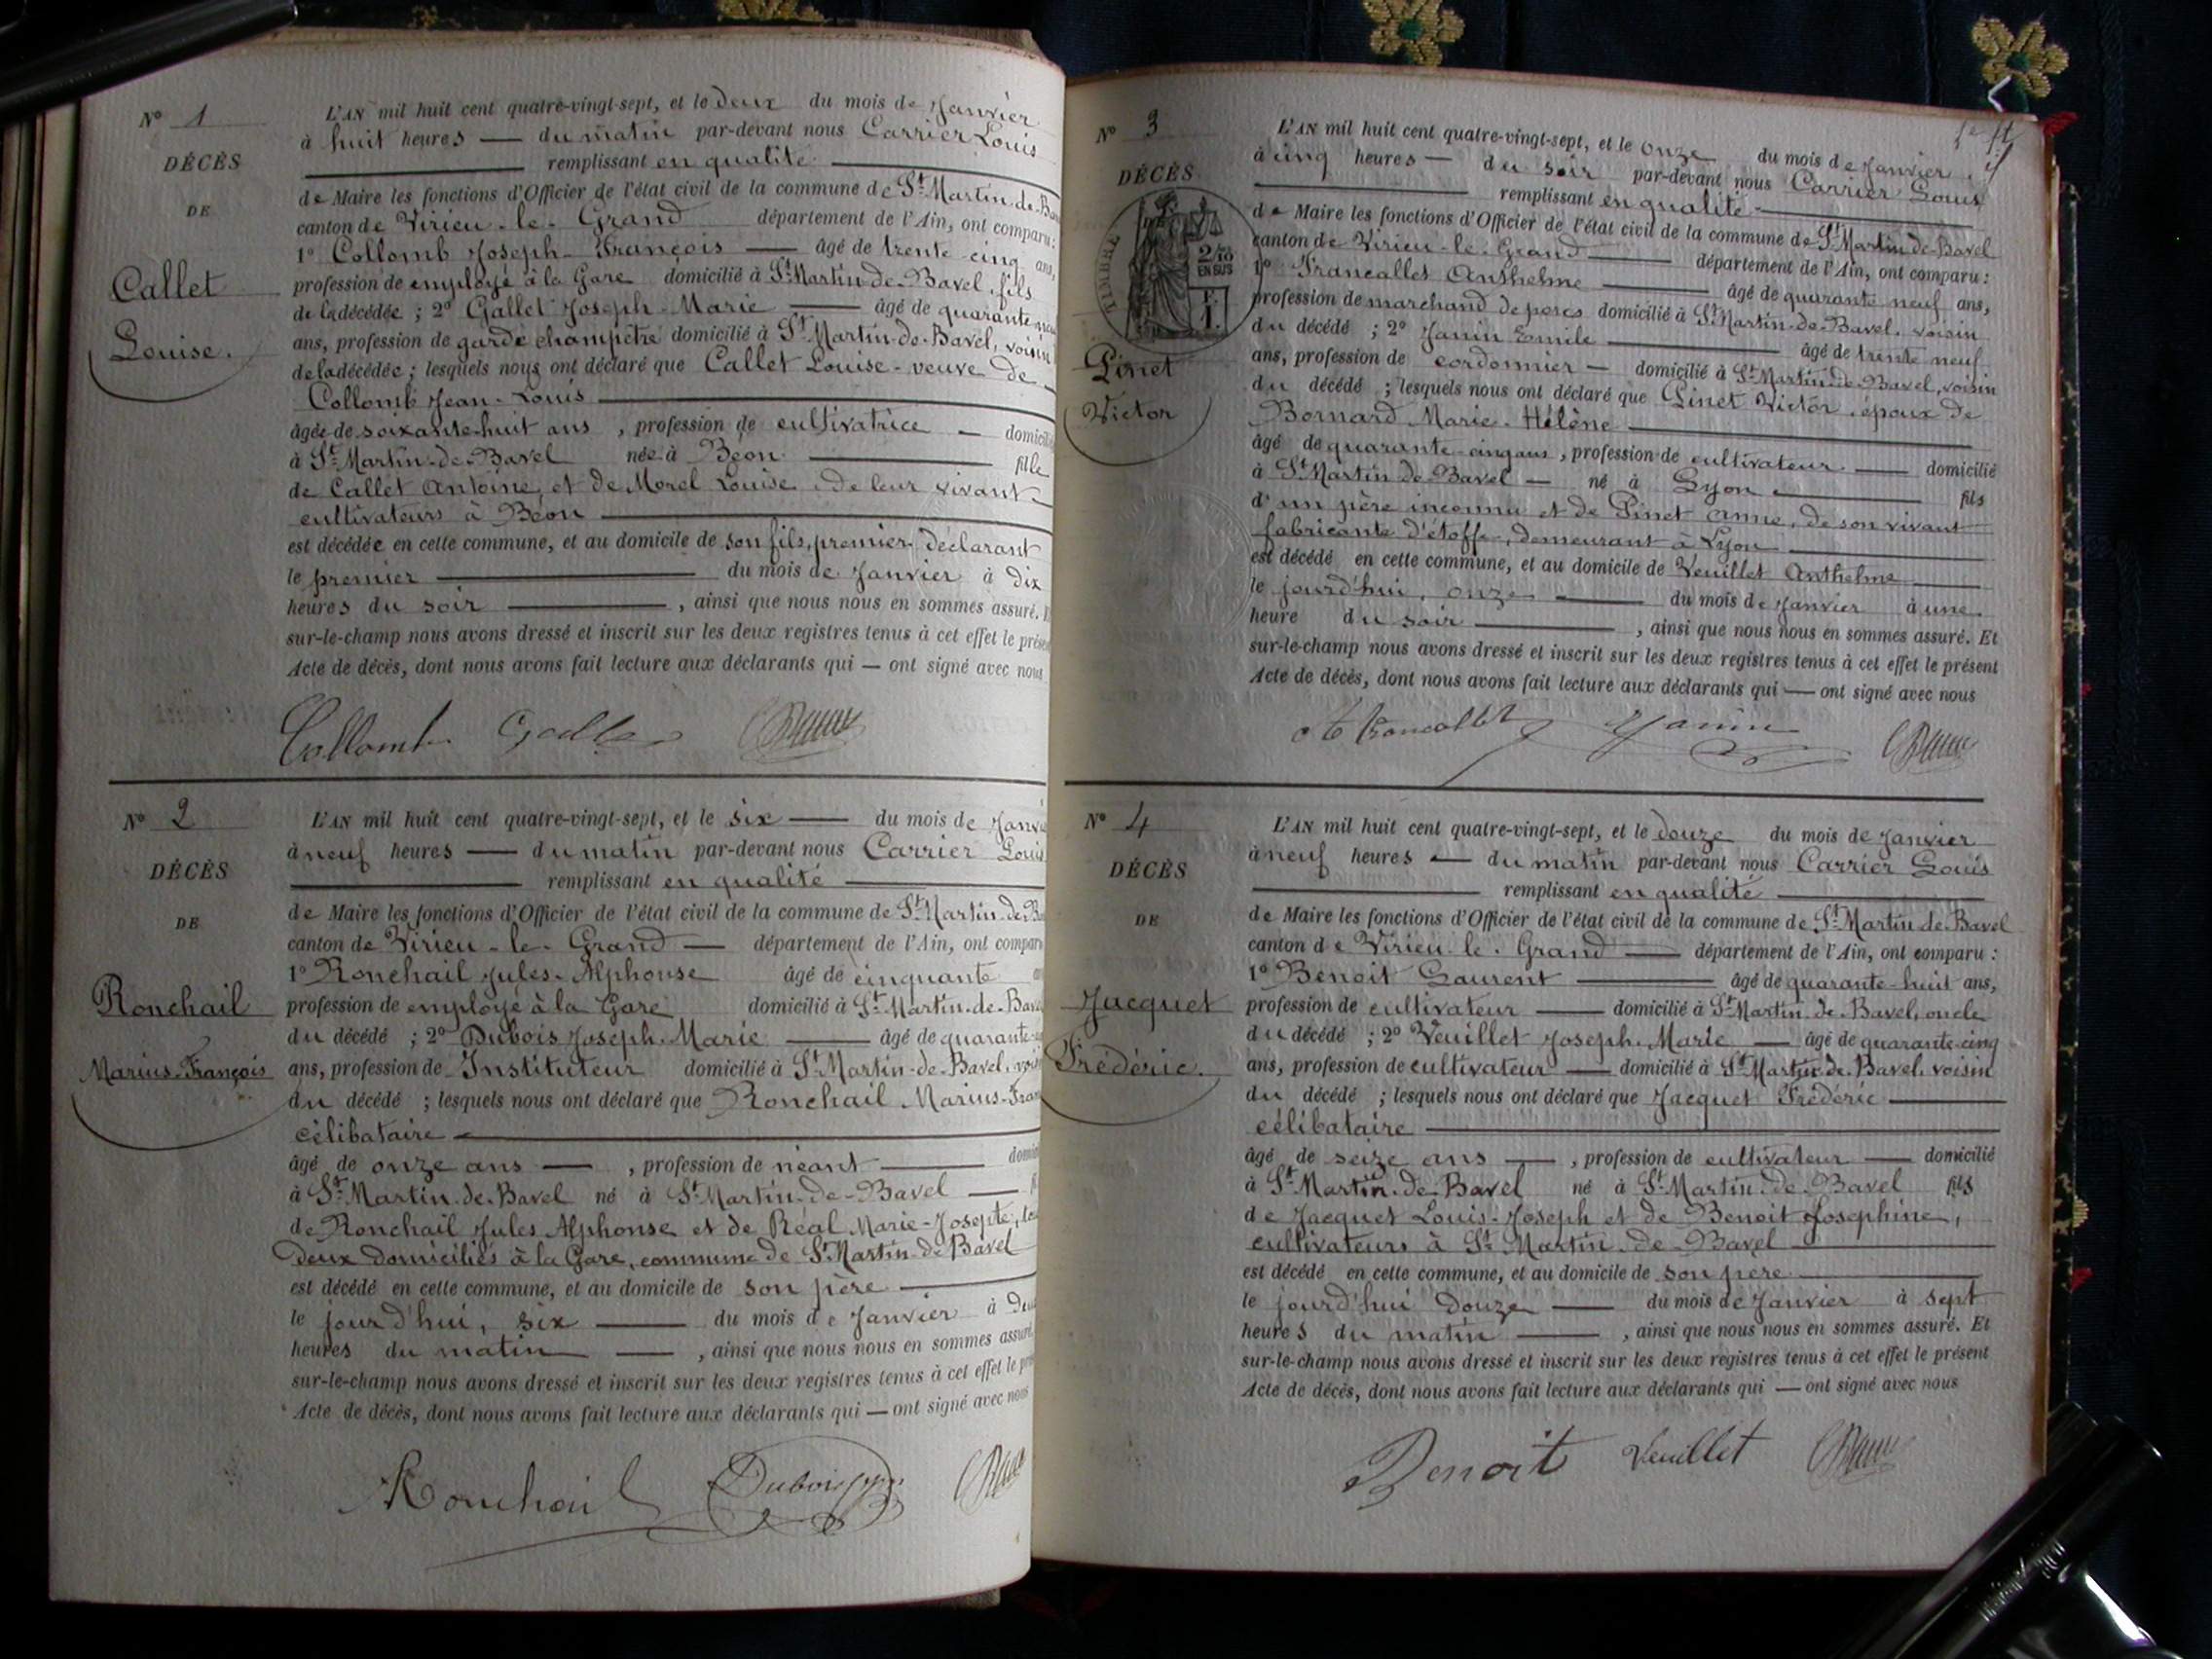 N° 1
DÉCÈS
DE
Callet
Louise.
L'AN mil huit cent quatre-vingt-sept, et le deux du mois de Janvier
à huit heures — du matin par-devant nous Carrier Louis
remplissant en qualité
de Maire les fonctions d'Officier de l'état civil de la commune de St Martin-de-
canton de Virieu-le-Grand département de l'Ain, ont comparu:
1° Collomb Joseph-François — âgé de trente-cinq ans,
profession de employé à la Gare domicilié à St Martin-de-Bavel, fils
de la décédée ; 2° Gallet Joseph-Marie — âgé de quarante
ans, profession de garde champêtre domicilié à St Martin-de-Bavel, voisin
de la décédée ; lesquels nous ont déclaré que Callet Louise - veuve de
Collomb Jean-Louis
âgée de soixante-huit ans , profession de cultivatrice —
à St Martin-de-Bavel née à Béon fille
de Callet Antoine, et de Morel Louise, de leur vivant
cultivateurs à Béon
est décédée en cette commune, et au domicile de son fils, premier déclarant
le premier du mois de Janvier à dix
heures du soir , ainsi que nous nous en sommes assuré.
sur-le-champ nous avons dressé et inscrit sur les deux registres tenus à cet effet le
Acte de décès, dont nous avons fait lecture aux déclarants qui — ont signé avec nous
Collomb
N° 2
DÉCÈS
DE
Ronchail
Marius-François
L'AN mil huit cent quatre-vingt-sept, et le six — du mois de
à neuf heures — du matin par-devant nous Carrier Louis
remplissant en qualité
de Maire les fonctions d'Officier de l'état civil de la commune de St Martin-de-
canton de Virieu-le-Grand — département de l'Ain, ont
1° Ronchail Jules-Alphonse âgé de cinquante
profession de employé à la Gare domicilié à St Martin-de-
du décédé ; 2° Dubois Joseph-Marie — âgé de quarante-
ans, profession de Instituteur domicilié à St Martin-de-Bavel,
du décédé ; lesquels nous ont déclaré que Ronchail Marius-
célibataire
âgé de onze ans — , profession de néant
à St Martin-de-Bavel né à St Martin-de-Bavel —
de Ronchail Jules Alphonse et de Réal Marie-Josepte,
deux domiciliés à la Gare, commune de St Martin-de-Bavel
est décédé en cette commune, et au domicile de son père
le jourd'hui, six — du mois de Janvier à
heures du matin — , ainsi que nous nous en sommes assuré.
sur-le-champ nous avons dressé et inscrit sur les deux registres tenus à cet effet le
Acte de décès, dont nous avons fait lecture aux déclarants qui — ont signé avec nous
Ronchail Dubois
N° 3
DÉCÈS
TIMBRE
2/10
EN SUS
Pinet
Victor
L'AN mil huit cent quatre-vingt-sept, et le onze du mois de Janvier
à cinq heures — du soir par-devant nous Carrier Louis
remplissant en qualité
de Maire les fonctions d'Officier de l'état civil de la commune de St Martin de Bavel
canton de Virieu-le-Grand département de l'Ain, ont comparu :
1° Francallet Anthelme âgé de quarante neuf ans,
profession de marchand de porcs domicilié à St Martin-de-Bavel, voisin
du décédé ; 2° Janin Emile âgé de trente neuf
ans, profession de cordonnier — domicilié à St Martin-de-Bavel, voisin
du décédé ; lesquels nous ont déclaré que Pinet Victor, époux de
Bornard Marie-Hélène
âgé de quarante-cinq ans , profession de cultivateur — domicilié
à St Martin de Bavel — né à Lyon fils
d'un père inconnu et de Pinet Anne, de son vivant
fabricante d'étoffe, demeurant à Lyon
est décédé en cette commune, et au domicile de Veuillet Anthelme
le jourd'hui, onze du mois de Janvier à une
heure du soir , ainsi que nous nous en sommes assuré. Et
sur-le-champ nous avons dressé et inscrit sur les deux registres tenus à cet effet le présent
Acte de décès, dont nous avons fait lecture aux déclarants qui — ont signé avec nous
Janin
N° 4
DÉCÈS
DE
Jacquet
Frédéric.
L'AN mil huit cent quatre-vingt-sept, et le douze du mois de Janvier
à neuf heures — du matin par-devant nous Carrier Louis
remplissant en qualité
de Maire les fonctions d'Officier de l'état civil de la commune de St Martin de Bavel
canton de Virieu-le-Grand — département de l'Ain, ont comparu :
1° Benoit Laurent âgé de quarante-huit ans,
profession de cultivateur — domicilié à St Martin-de-Bavel, oncle
du décédé ; 2° Veuillet Joseph-Marie — âgé de quarante-cinq
ans, profession de cultivateur — domicilié à St Martin-de-Bavel, voisin
du décédé ; lesquels nous ont déclaré que Jacquet Frédéric
célibataire
âgé de seize ans — , profession de cultivateur — domicilié
à St Martin-de-Bavel né à St Martin-de-Bavel fils
de Jacquet Louis-Joseph et de Benoit Josephine,
cultivateurs à St Martin-de-Bavel
est décédé en cette commune, et au domicile de son père
le jourd'hui douze — du mois de Janvier à sept
heures du matin — , ainsi que nous nous en sommes assuré. Et
sur-le-champ nous avons dressé et inscrit sur les deux registres tenus à cet effet le présent
Acte de décès, dont nous avons fait lecture aux déclarants qui — ont signé avec nous
Benoit Veuillet